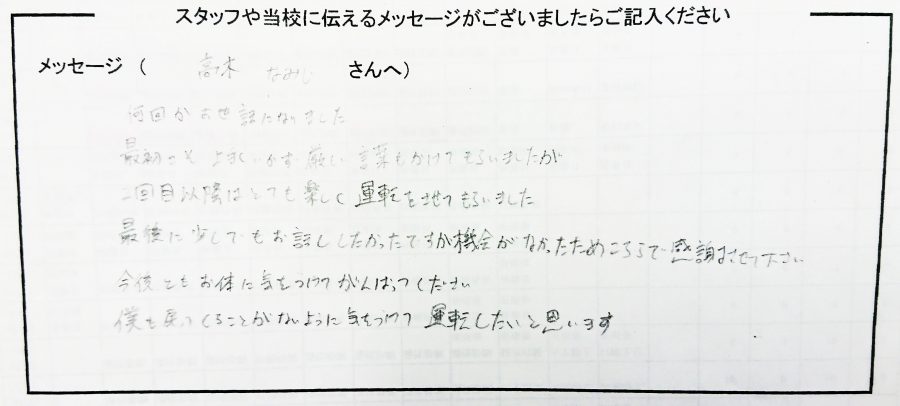 スタッフや当校に伝えるメッセージがございましたらご記入ください
メッセージ ( 高木 なみじ さんへ)
何回かお世話になりました
最初こそ上手くいかず厳しい言葉もかけてもらいましたが
二回目以降はとても楽しく運転をさせてもらいました
最後に少しでもお話ししたかったですが機会がなかったためこちらで感謝させて下さい
今後ともお体に気をつけてがんばってください
僕も戻ってくることがないように気をつけて運転したいと思います